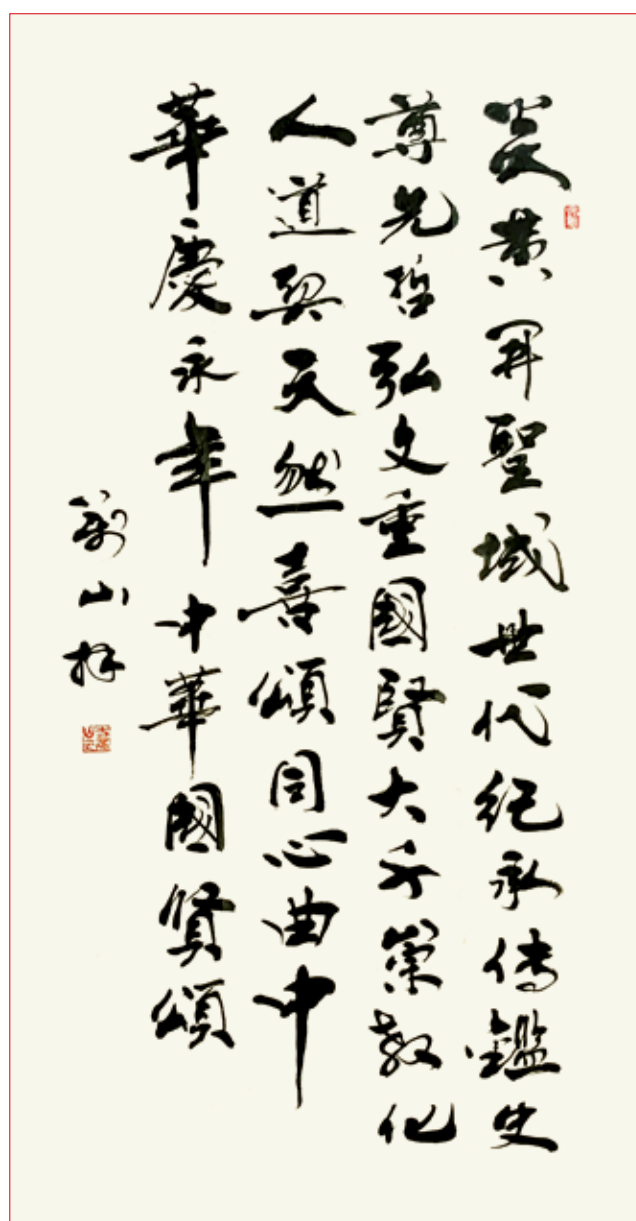 炎黄開聖域世代紀承傳鑑史
尊先哲弘文重國賢大千崇教化
人道契天然喜頌同心曲中
華慶永年中華國賢頌
山